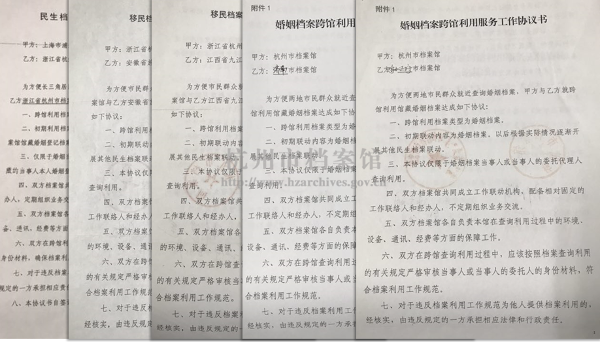 民生档
甲方：上海市浦
乙方：浙江省
为方便长三角居
乙方浙江省杭州市档
一、跨馆利用
二、初期利用档
案馆馆藏婚姻登记档
三、仅限于婚姻
四、双方档案馆
办人，定期组织业
五、双方档案馆
备、通讯、经费等方
六、双方在跨馆
身份材料，确保档案
七、对于违反档
规定的一方承担相应
八、本协议书自签
移民档
甲方：浙江省
乙方：安徽省
为方便
案馆与乙方安徽省
如下协议：
一、跨馆
二、初期
展其他民生档案
三、本协
查询利用。
四、双方
工作联络人和经
五、双方
的环境、设备、
六、双方
的有关规定严格
合档案利用工作
七、对于
经核实，由违反
移民档案
甲方：浙江省杭
乙方：江西省九江
为方便两
案馆与乙方江西省九
如下协议：
一、跨馆利用
二、初期联动
展其他民生档案联动
三、本协议仅
查询利用。
四、双方档案
工作联络人和经办
五、双方档案
的环境、设备、通讯
六、双方在跨
的有关规定严格审核
合档案利用工作规范
七、对于违反
经核实，由违反规定
附件 1
婚姻档案跨馆利用
甲方：杭州市档案馆
市档案馆
为方便两地市民群众就近
馆利用馆藏档案达成如下协
一、跨馆利用档案类型为婚
二、初期联动内容为婚姻档
展其他民生档案联动。
三、本协议仅限于婚姻档案
查询利用。
四、双方档案馆共同成立工
工作联络人和经办人，不定期组
五、双方档案馆各自负责本
设备、通讯、经费等方面的保障
六、双方在跨馆查询利用
的有关规定严格审核当事人或当
合档案利用工作规范。
七、对于违反档案利用工作
经核实，由违反规定的一方承担
附件 1
婚姻档案跨馆利用服务工作协议书
甲方：杭州市档案馆
市档案馆
为方便两地市民群众就近查询婚姻档案，甲方与乙方就跨
馆利用馆藏婚姻档案达成如下协议：
一、跨馆利用档案类型为婚姻档案。
二、初期联动内容为婚姻档案，以后根据实际情况逐渐开
展其他民生档案联动。
三、本协议仅限于婚姻档案当事人或当事人的委托代理人
查询利用。
四、双方档案馆共同成立工作联动机构，配备相对固定的
工作联络人和经办人，不定期组织业务交流。
五、双方档案馆各自负责本馆在查询利用过程中的环境、
设备、通讯、经费等方面的保障工作。
六、双方在跨馆查询利用过程中，应该按照档案查询利用
的有关规定严格审核当事人或当事人的委托人的身份材料，符
合档案利用工作规范。
七、对于违反档案利用工作规范为他人提供档案利用的，
经核实，由违反规定的一方承担相应法律和行政责任。
杭州市档案馆
http://www.hzarchives.gov.cn